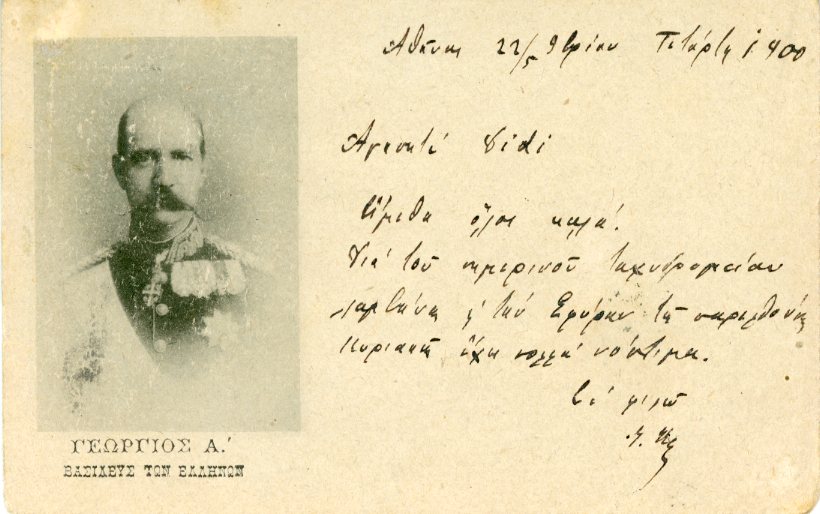 Αθήναι 22/5 9βρίου Τετάρτη 1900
Αγαπητέ
Είμεθα όλοι καλά!
Διά του σημερινού ταχυδρομείου
λαμβάνεις την Εφύραν της παρελθούσης
Κυριακής έχει πολλά νόστιμα.
Σε φιλώ
ΓΕΩΡΓΙΟΣ Α.΄
ΒΑΣΙΛΕΥΣ ΤΩΝ ΕΛΛΗΝΩΝ